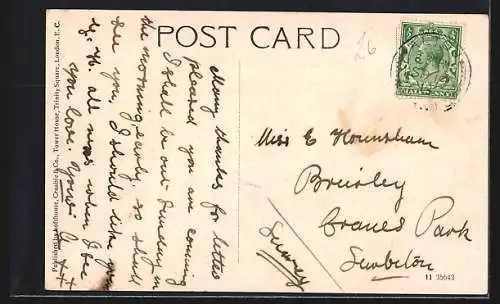 POST CARD
26
HALFPENNY
Many thanks for letter
pleased you are coming
I shall be out Sunday in
the morning early. so shall
see you, I should like
all news when I see
you love. Yours
Miss E Hounsham
Cranes Park
Surbiton
Surrey
11 35643
Tower House, Trinity Square, London, E.C.